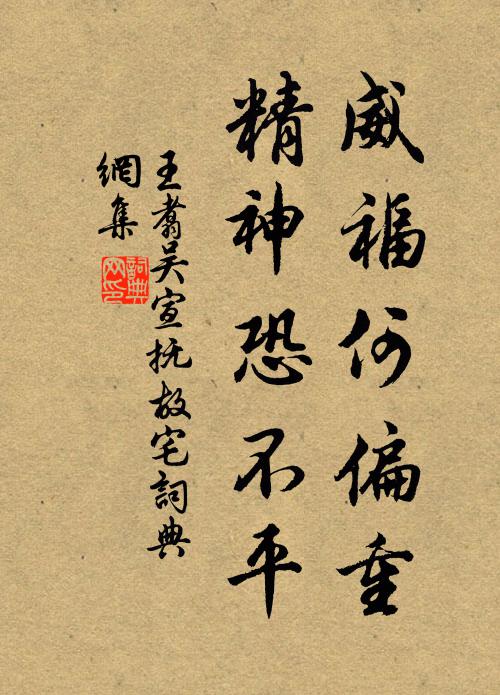 威福何偏重
精神恐不平
王翥吴宣抚故宅詞典
網集
詞典
网印